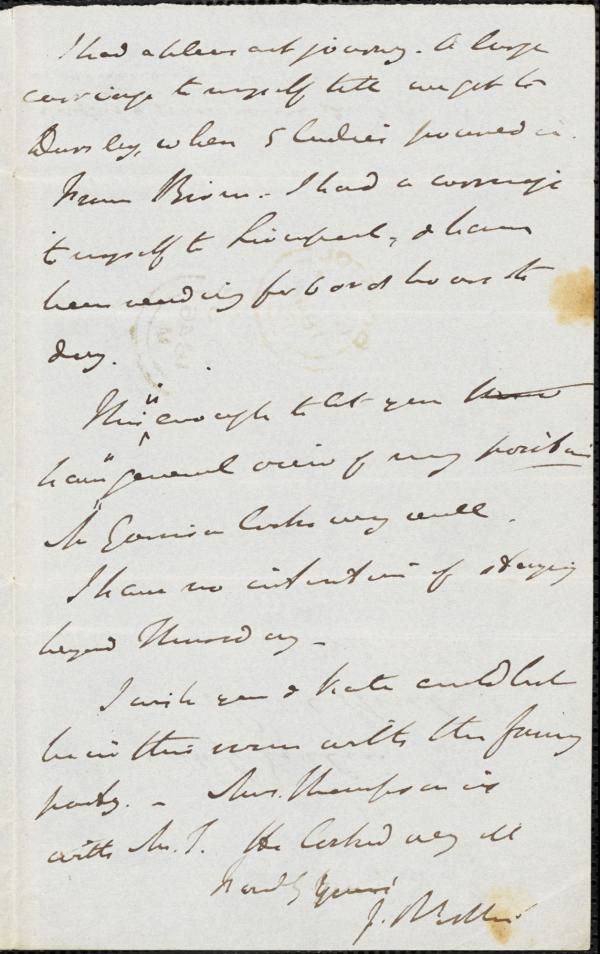 I had a pleasant journey. A large
carriage to myself till we got to
Dursley, when 5 ladies poured in.
From Birm. I had a carriage
to myself to Liverpool, & have
been reading for 6 or 8 hours to
day.
This is enough to let you
have a general view of my position
Mr Garrison looks very well.
I have no intention of staying
beyond Thursday -
I wish you & Kate could but
be in this room with this
party. - Mrs. Thompson is
with Mr. T. He looked very ill
Yours
J. B. Estlin